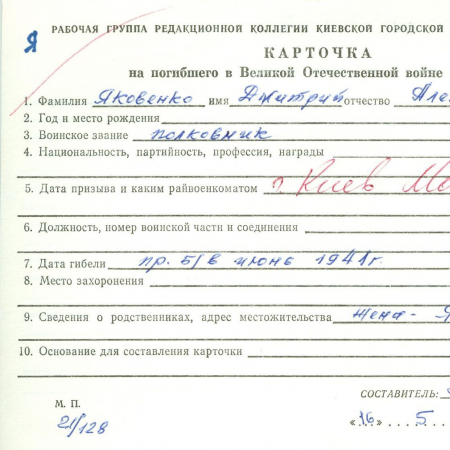 РАБОЧАЯ ГРУППА РЕДАКЦИОННОЙ КОЛЛЕГИИ КИЕВСКОЙ ГОРОДСКОЙ
Я
КАРТОЧКА
на погибшего в Великой Отечественной войне
1. Фамилия Яковенко имя Дмитрий отчество Але
2. Год и место рождения
3. Воинское звание полковник
4. Национальность, партийность, профессия, награды
5. Дата призыва и каким райвоенкоматом г. Киев Мо
6. Должность, номер воинской части и соединения
7. Дата гибели пр. б/в июнь 1941 г.
8. Место захоронения
9. Сведения о родственниках, адрес местожительства жена - Я
10. Основание для составления карточки
СОСТАВИТЕЛЬ:
М. П.
21/128
«16» . . . 5 . .